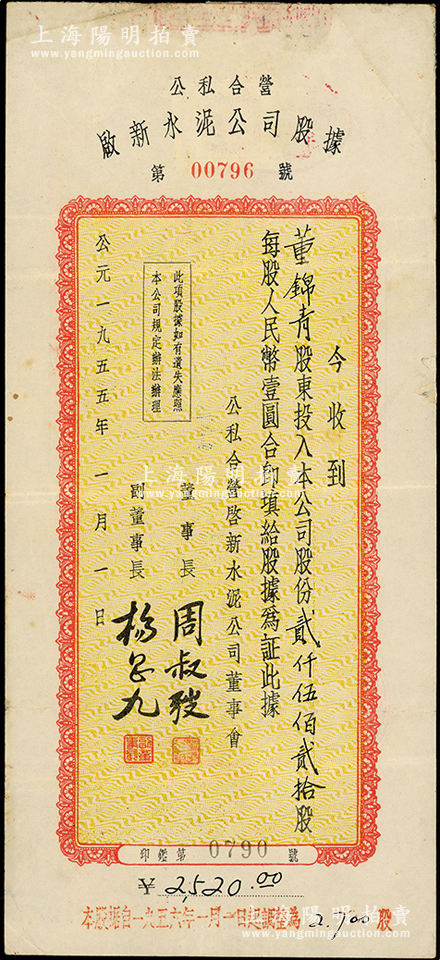 上海陽明拍賣
www.yangmingauction.com
公私合營
啟新水泥公司股據
第 00796 號
今收到
董錦青股東投入本公司股份貳仟伍佰貳拾股
每股人民幣壹圓合即填給股據為証此據
公私合營啓新水泥公司董事會
董事長 周叔弢
副董事長
此項股據如有遺失應照
本公司規定辦法辦理
公元一九五五年一月一日
印鑑第 0790 號
¥ 2,520.00
本股據自一九五六年一月一日起調整為 2,700 股
上海陽明拍賣
www.yangmingauction.com
上海陽明拍賣
www.yangmingauction.com